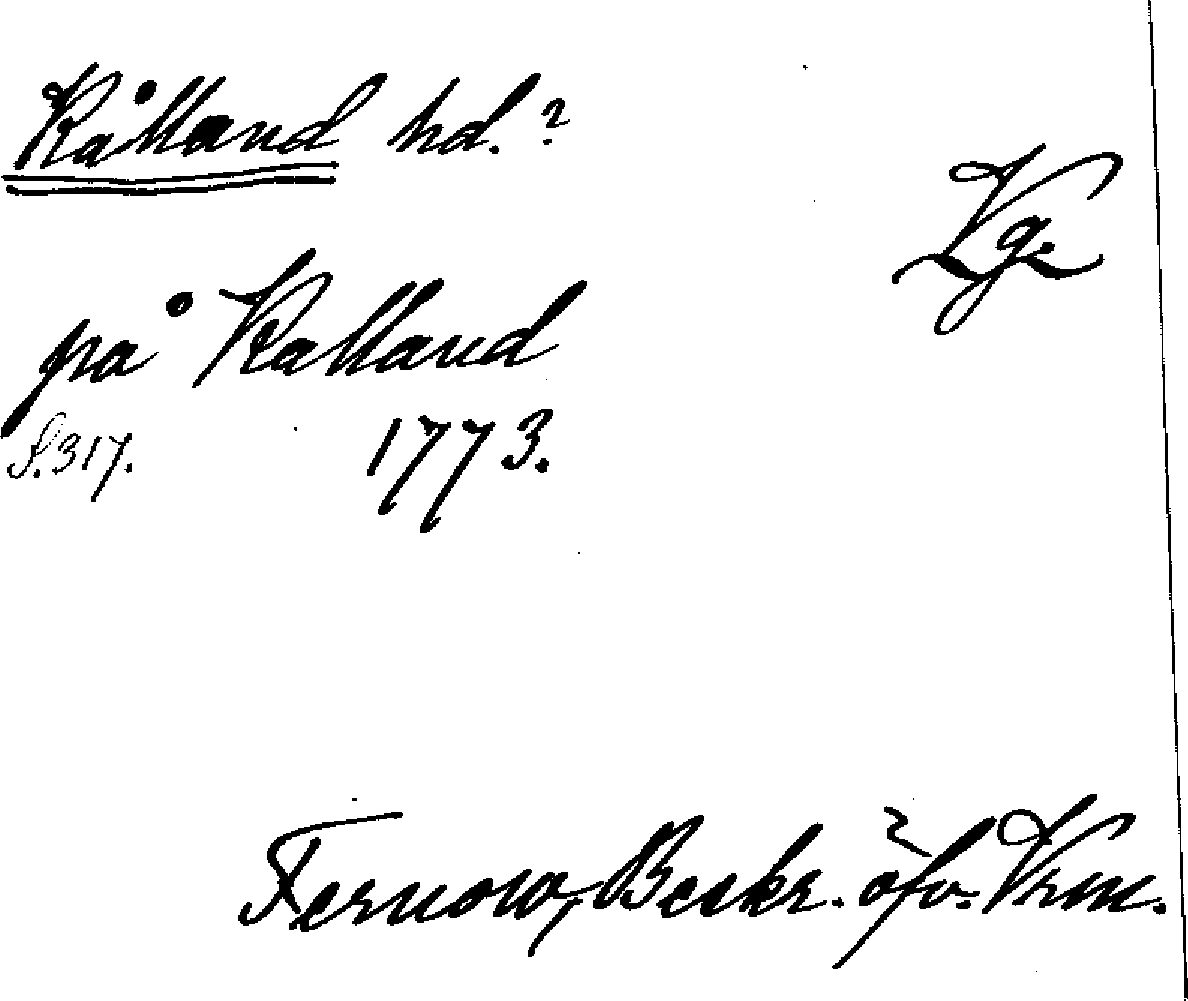 Kålland hd.?
Vg.
på Kalland
S. 317. 1773.
Fernow, Beskr. öfv. Vrm.